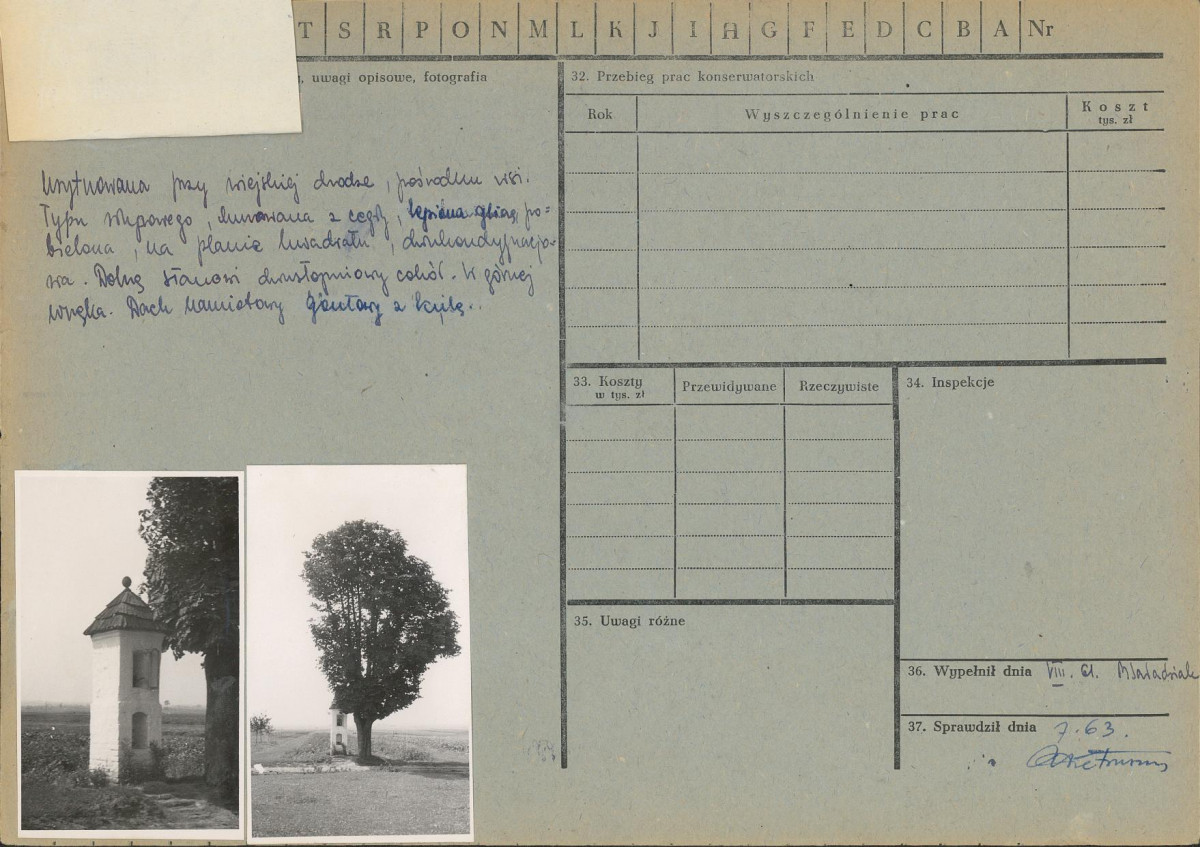 T S R P O N M L K J I H G F E D C B A Nr
, uwagi opisowe, fotografia
Usytuowana przy wiejskiej drodze, pośrodku wsi.
Typu słupowego, murowana z cegły, lepiona gliną, po=
bielona, na planie kwadratu, dwukondygnacjo-
wa. Dolną stanowi dwustopniowy cokół. W górnej
wnęka. Dach namiotowy gontowy z kulą.
32. Przebieg prac konserwatorskich
Rok
Wyszczególnienie prac
Koszt
tys. zł
33. Koszty
w tys. zł
Przewidywane
Rzeczywiste
34. Inspekcje
35. Uwagi różne
36. Wypełnił dnia VIII. 61.
37. Sprawdził dnia 7.63.